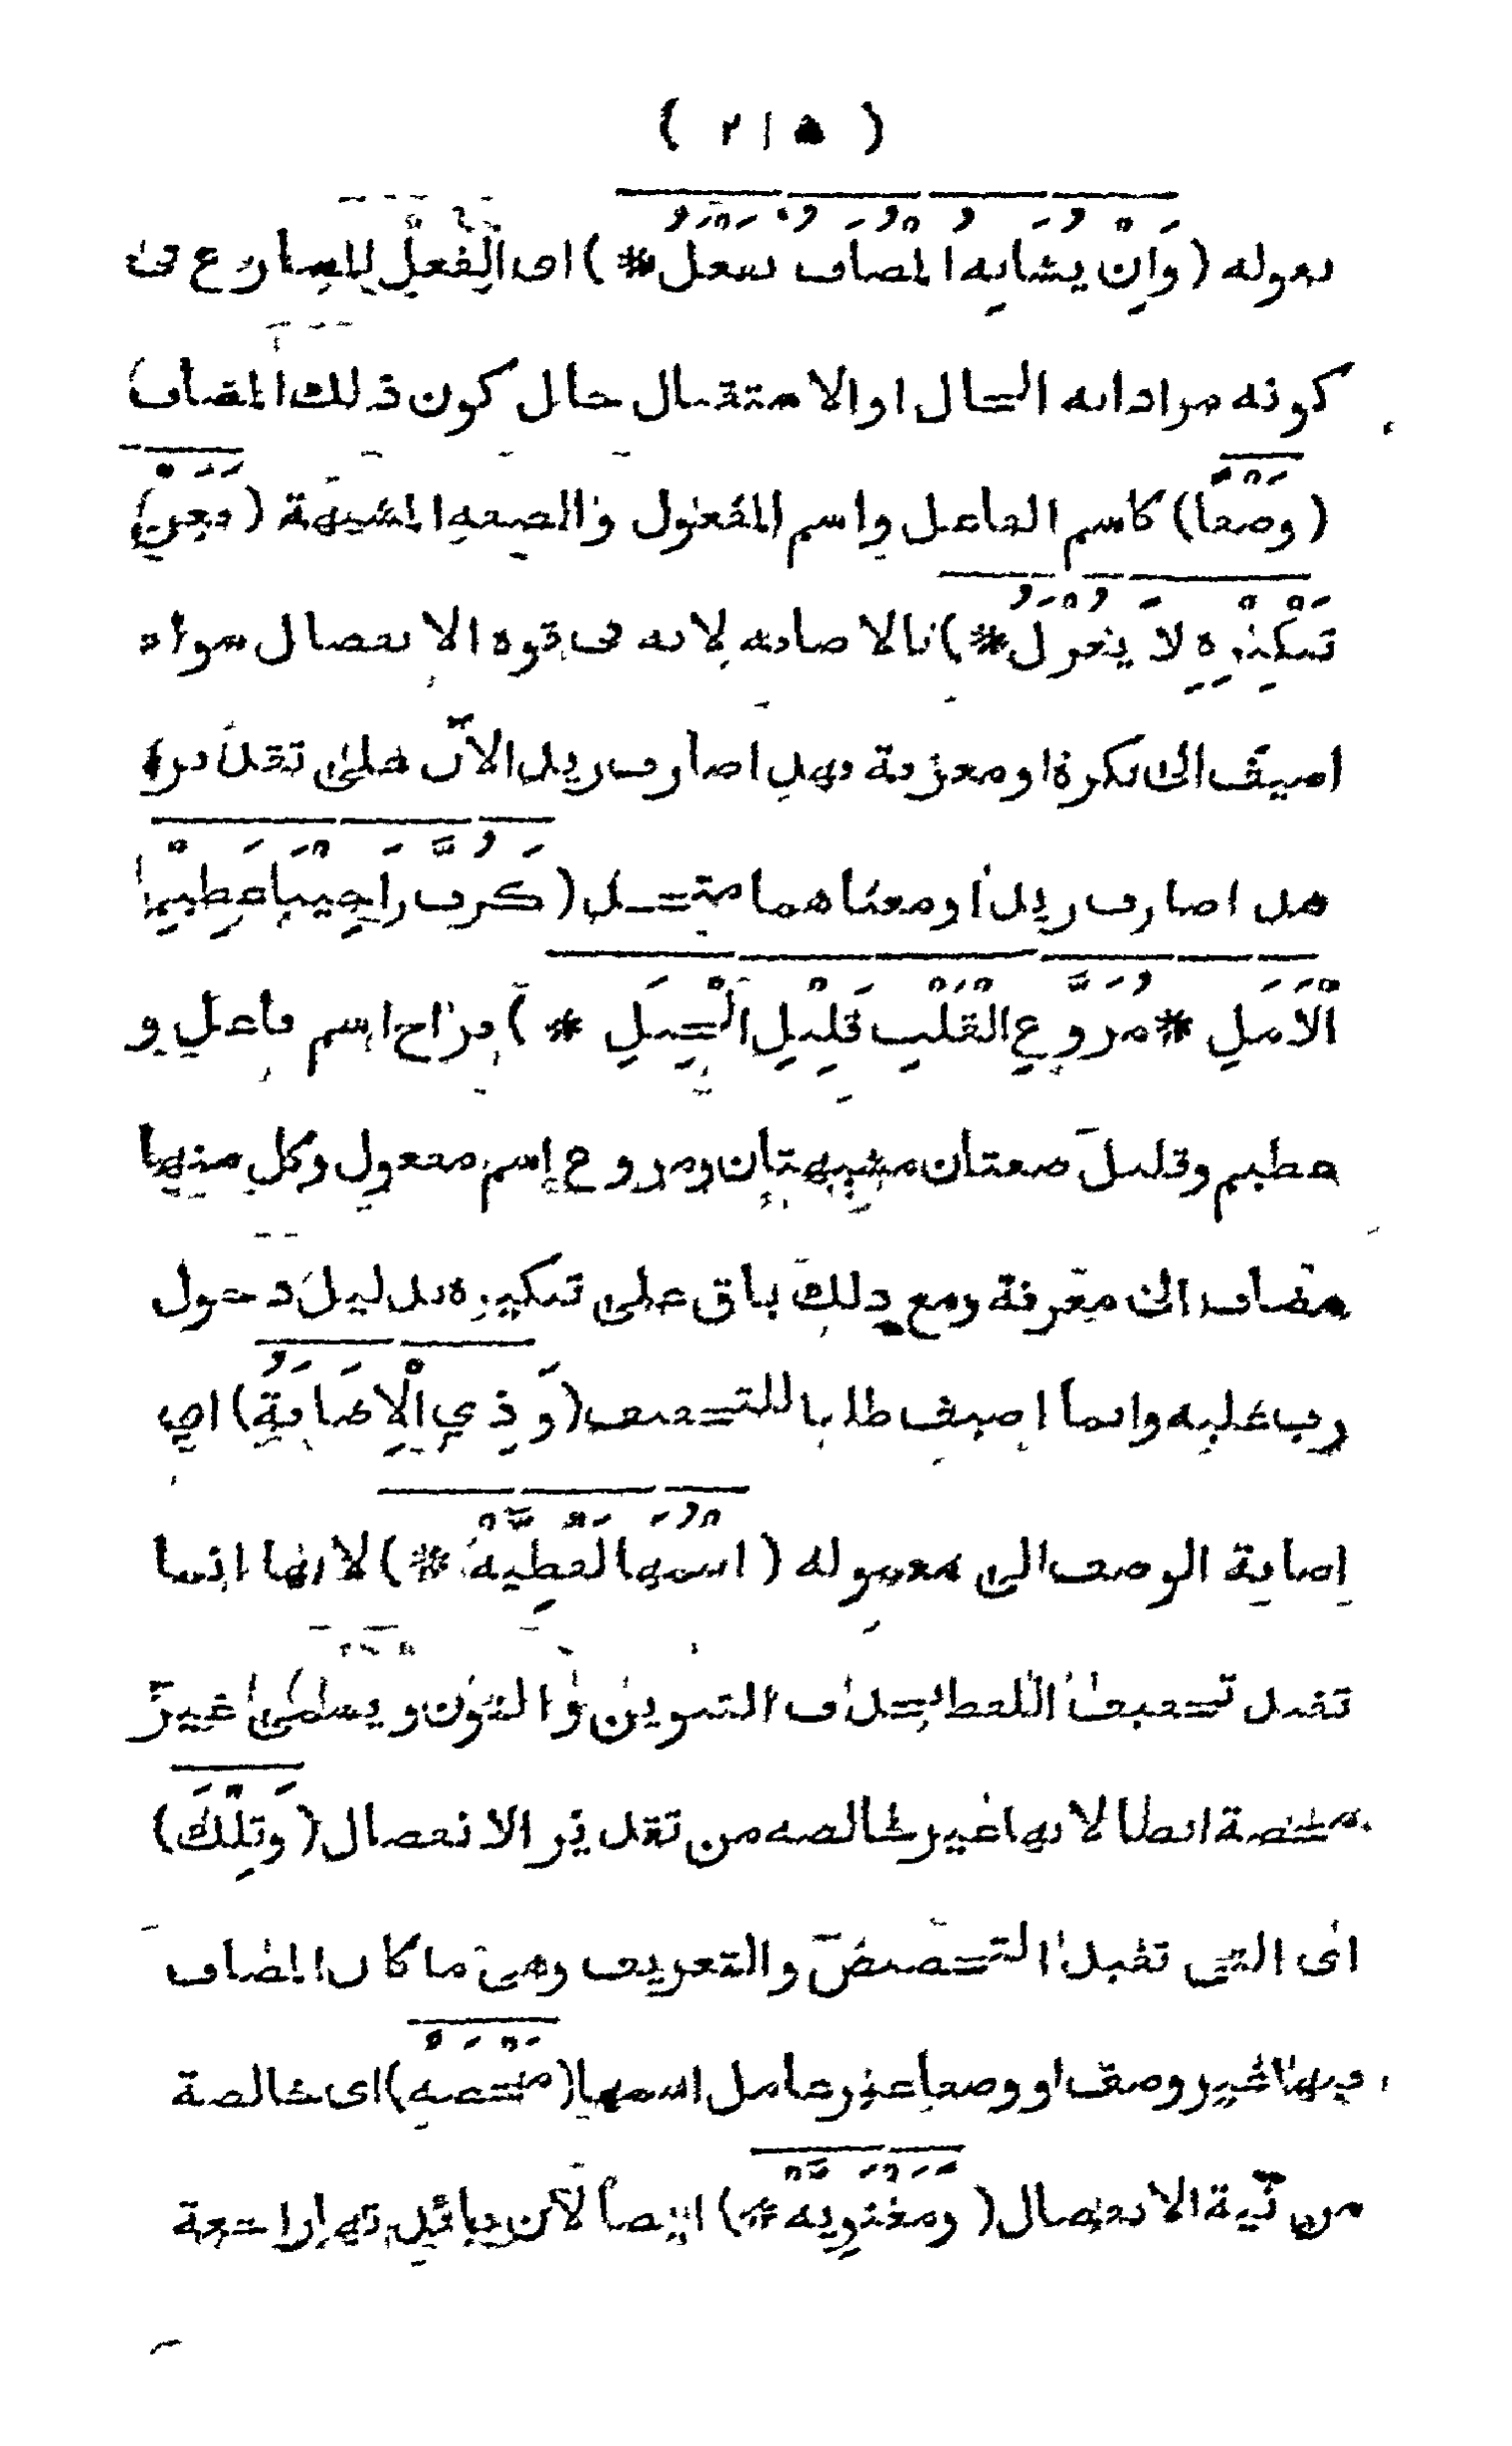 ( ٢١٥ )
بقوله ( وَاِنْ يُشَابِهِ المُضَافُ يَفْعَلُ * ) اى الفعل المضارع فى
كونه مرادا به الحال او الاستقبال حال كون ذلك المضاف
( وَصْفًا ) كاسم الفاعل واسم المفعول والصفة المشبهة ( فَعَنْ
تَنْكِيْرِهِ لَا يُعْزَلُ * ) بالاضافة لانه فى قوة الانفصال سواء
اضيف الى نكرة او معرفة فهل ضارب زيد الآن على تقدير
هل ضارب زيدا ومعناهما متحد ( كَرُبَّ رَاجِيْنَا عَظِيْمِ
الْاَمَلِ * مُرَوَّعِ القَلْبِ قَلِيْلِ الْحِيَلِ * ) فراج اسم فاعل و
عظيم وقليل صفتان مشبهتان ومروع اسم مفعول وكل منها
مضاف الى معرفة ومع ذلك باق على تنكيره بدليل دخول
رب عليه وانما اضيف طلبا للتخفيف ( وَذِي الْاِضَافَةُ ) اى
اضافة الوصف الى معموله ( اسْمُهَا لَفْظِيَّهْ * ) لانها انما
تفيد تخفيف اللفظ بحذف التنوين والنون ويسمى غير
محضة ايضا لانها غير خالصة من تقدير الانفصال ( وَتِلْكَ )
اى التى تفيد التخصيص والتعريف وهى ما كان المضاف
فيها غير وصف او وصفا غير عامل اسمها ( مَحْضَةٌ ) اى خالصة
من نية الانفصال ( وَمَعْنَوِيَّهْ * ) ايضا لان فائدته راجعة